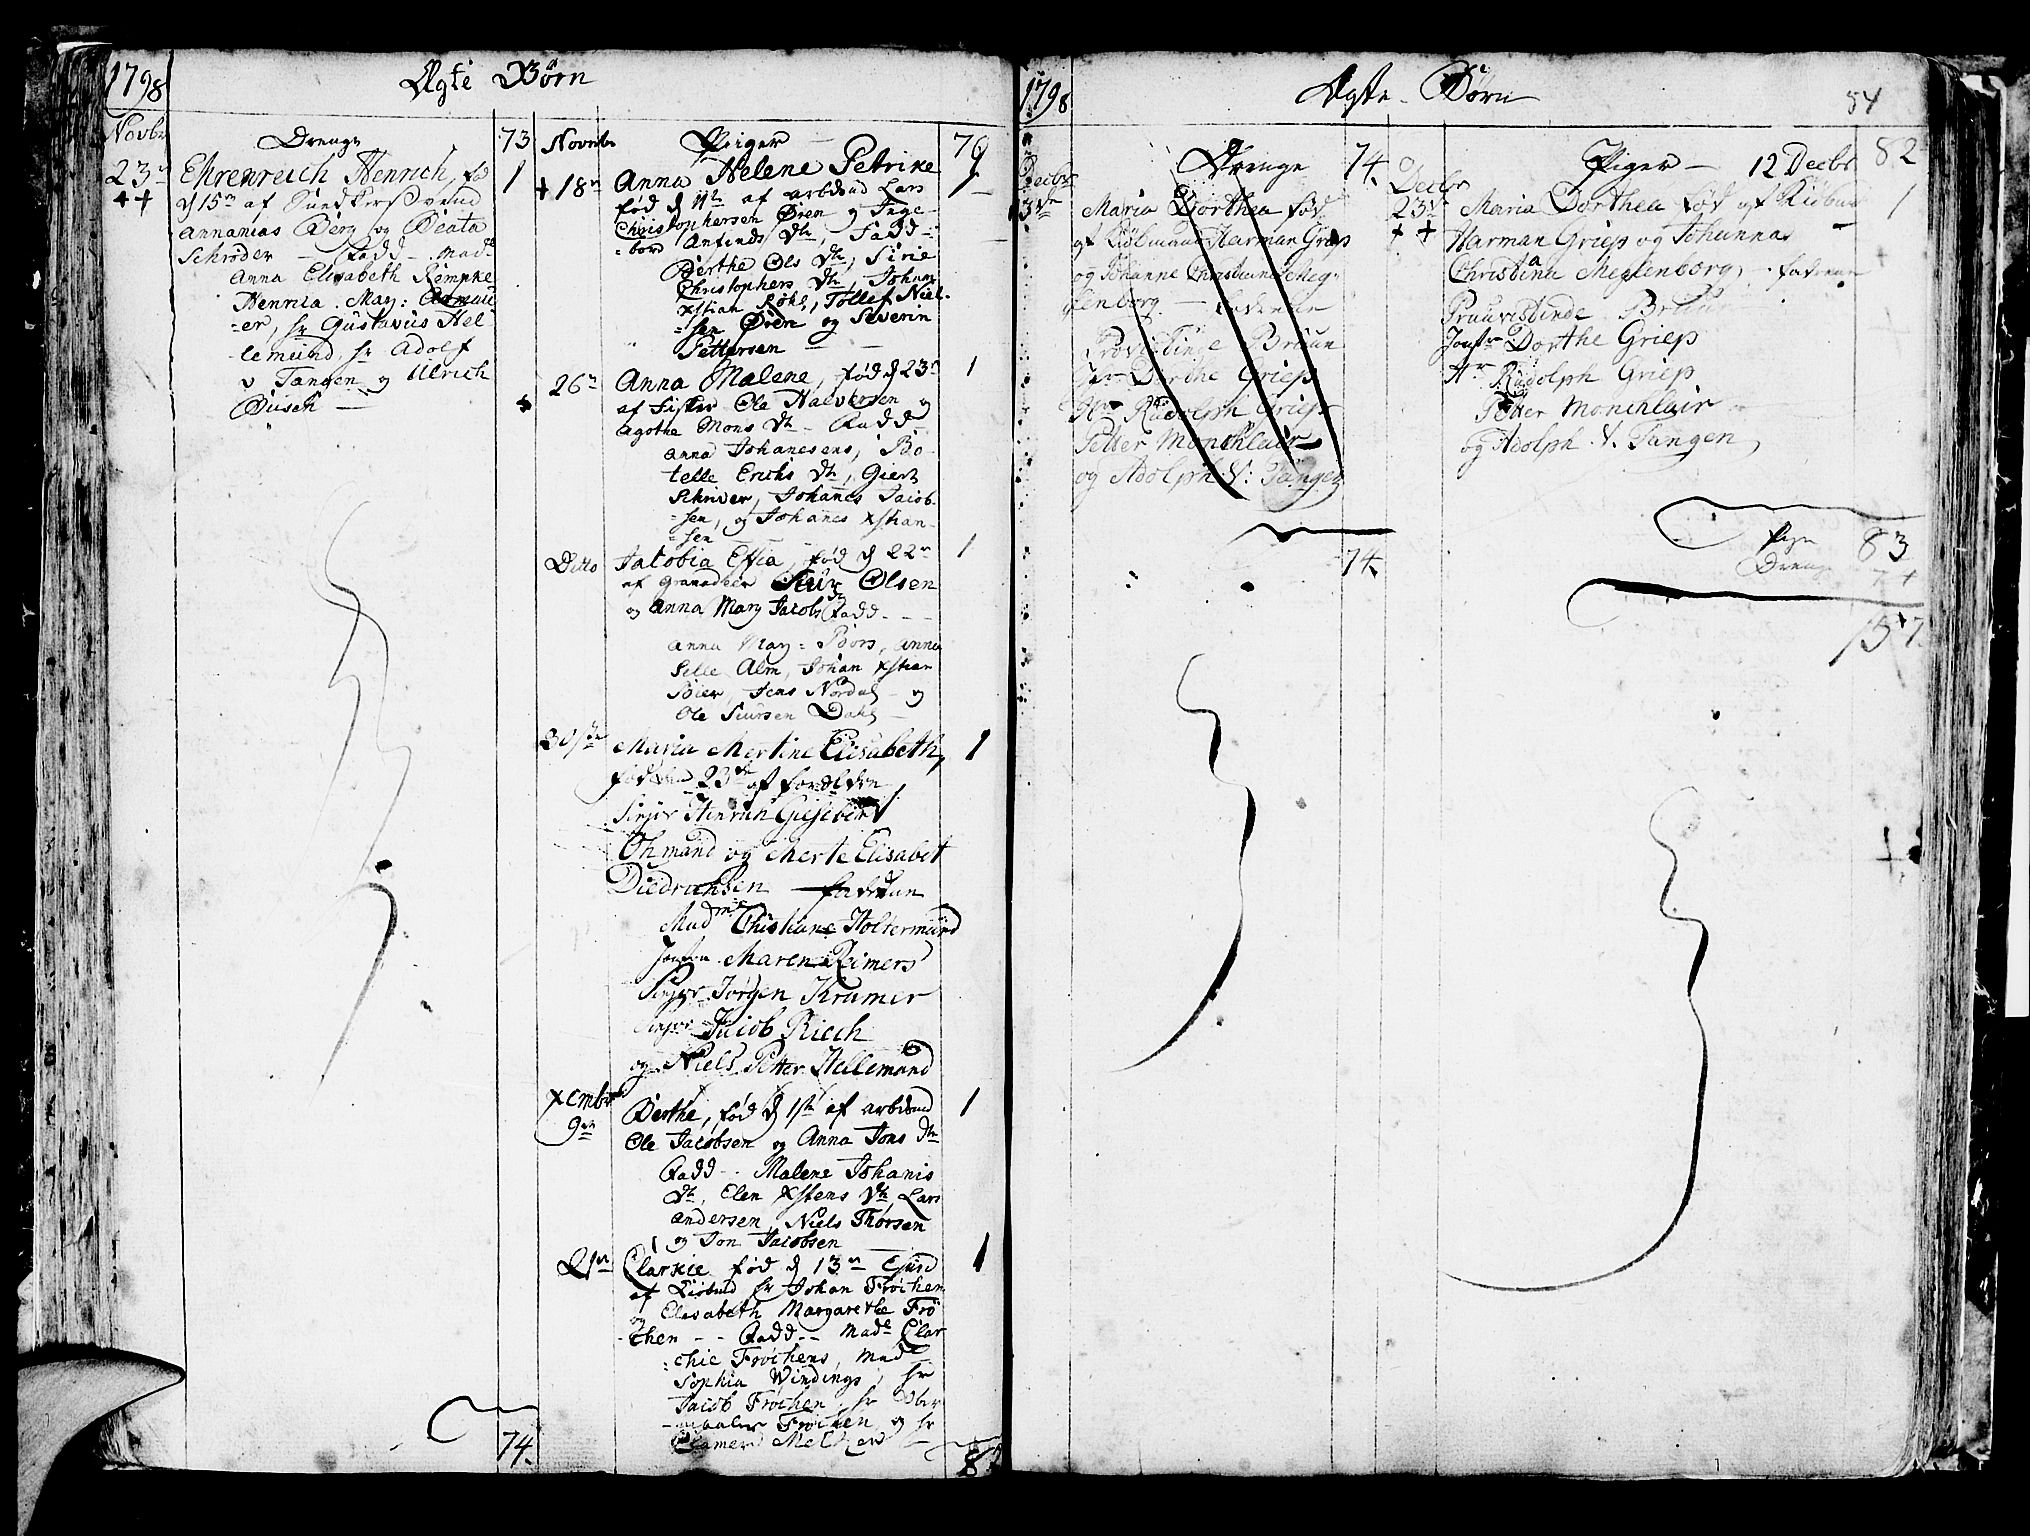 1798
Ægte Børn
Novbr
Drenge
73
23n
++
Ehrenreich Henrich, fød
1
d 15n af Sundkers Svend
Annanias Berg og Beata
Schrøder — Fadd — Made
Anna Elisabeth Rempke
Henrica Mar:
=er, hr Gustavus Hel
lemund, hr Adolf
v Tangen og Ulrich
Busch —
74.
Novmbr
Piger
76
+ 18n
Anna Helene Petrike
1
fød d 11te af arbdmd Lars
Christophersen Øren og Inge-
=bord Anfinds Dtr, Fadd-
Berthe Ols Dtr, Sirie
Christophers Dtr, Johan
Xstian Røhl, Tollef Niel-
=sen Øren og Severin
Pettersen —
26n
Anna Malene, fød d 23n
1
af Fisker Ole Halvorsen og
Agothe Mons Dtr — Fadd
Anna Johanesens, Bo-
telle Erichs Dtr, Giert
Schriver, Johanes Jacob-
=sen, og Johanes Xstian-
=sen
Ditto
Jacobia Effia, fød d 22n
1
af Granadeer Siur Olsen
og Anna Mary Jacobs Dr Fadd
Anna Mary: Bors, Anna
Sille Alm, Johan Xstian
Boier, Jens Nordal og
Ole Siursen Dahl
30te
Maria Mertine Elisabeth,
1
fød den 23de af forældre
Sinjor Hinrich Gisebert
Ohmand og Merte Elisabet
Diedrichsen — fadderan
Madme Christiane Holtermund
Jomfru Maren Reimers
Sinjor Jørgen Kramer
Sinjor Jacob Riech
og Niels Petter Hellemund
Xembr
9en
Berthe, fød d 1ste af arbdmd
1
Ole Jacobsen og Anna Jons Dtr
Fadd — Malene Johanis
Dtr, Elen Xstens Dtr, Lars
Andersen, Niels Thorsen
og Jon Jacobsen
21n
Clarkie fød d 13n
1
af Kiøbmd hr Johan Frøchen
og Elisabeth Margarethe Frø
-chen — Fadd — Made Clar
=chie Frøchens, Made
Sophia Windings, hr
Jacob Frøchen, hr Ober
Frøchen og hr
Clamerd Meltzer
1798
Ægte Børn
54
Decbr
Drenge
74.
3de
Maria Dorthea fød
af Kiøbmand Harman Griep
og Johanne Christiane Meg-
lenborg — Faderne
Provistinde Bruun
Jfr Dorthe Griep
Hr Rudolph Griep
Petter Monchlair
og Adolph V: Tangen
74.
Decbr
Piger — 12 Decbr
82
23de
++
Maria Dorthea fød af Kiøbm
1
Harman Griep og Johanna
Christina Meglenborg, fadrene
Pruuvistinde Bruun
Jomfr Dorthe Griep
Hr Rudolph Griep
Petter Monchlair
og Adolph V. Tangen,
Pige 83
Drenge 74
157